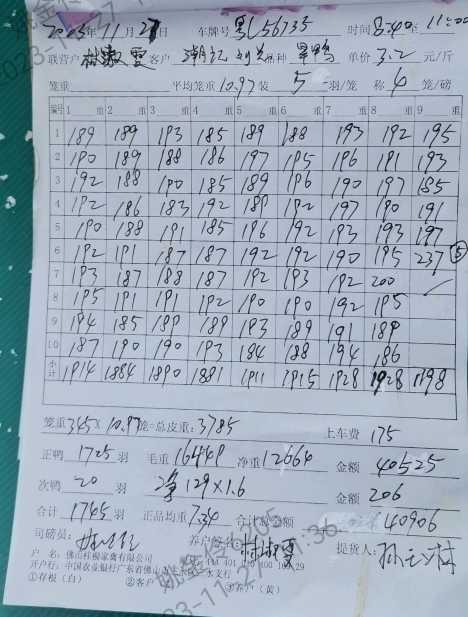 2023年11月27日 车牌号 粤L56735 时间 8:40至11:00
联营户 林淑雯 客户 潮记 品种 旱鸭 单价 3.2 元/斤
笼重 平均笼重 10.97 装 5 羽/笼 称 4 笼/磅
编号 1 重 2 重 3 重 4 重 5 重 6 重 7 重 8 重 9 重
1 189 189 193 185 189 188 193 192 195
2 190 189 188 186 197 195 196 191 193
3 192 188 190 185 189 196 190 197 185
4 192 186 183 192 189 192 197 190 191
5 190 188 191 185 196 192 193 193 197
6 192 191 187 187 192 192 190 195 237 ⑤
7 193 187 188 187 192 193 192 200
8 195 191 191 192 190 190 192 195
9 194 185 189 189 193 189 191 189
10 187 190 190 193 184 188 194 186
小计 1914 1884 1890 1881 1911 1915 1928 1928 1198
笼重 345 × 10.97 笼=总皮重: 3785 上车费 175
正鸭 1725 羽 毛重 16449 净重 12664 金额 40525
次鸭 20 羽 净 129×1.6 金额 206
合计 1745 羽 正品均重 7.34 合计总金额 40906
司磅员: 养户签名: 林淑雯 提货人:
户 名: 佛山桂柳家禽有限公司
开户行: 中国农业银行广东省佛山
①存根(白) ②客户 ③养户(黄)